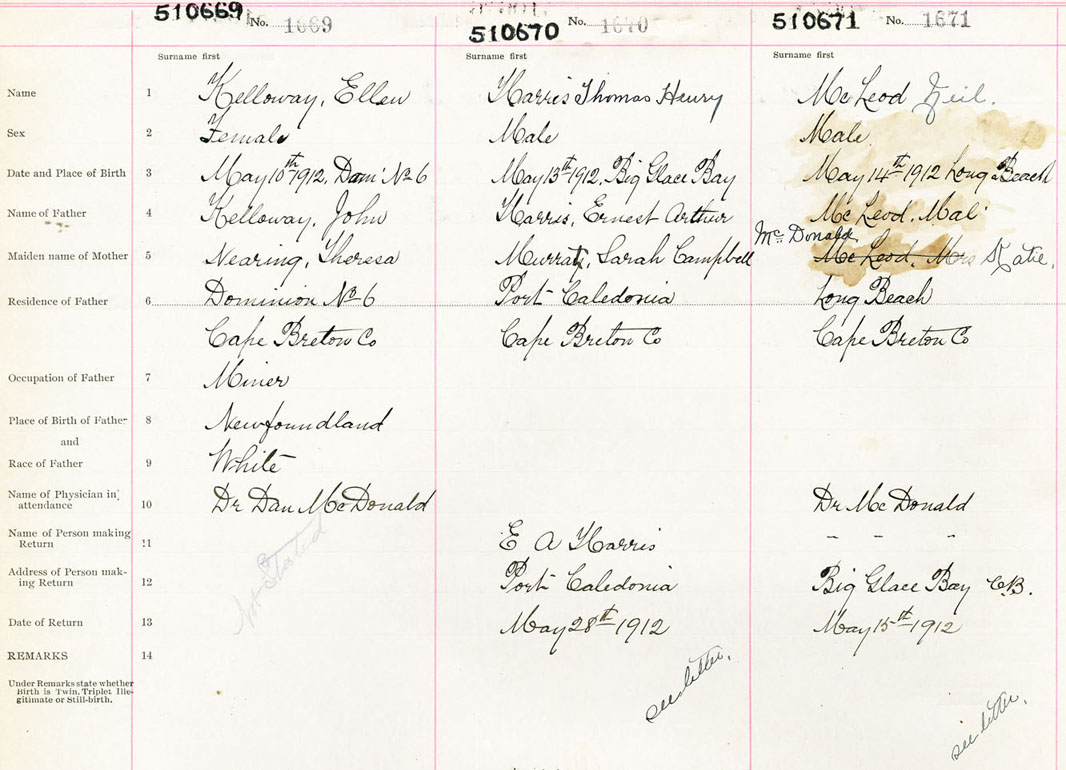 510669 No. 1669
510670 No. 1670
510671 No. 1671
Surname first Surname first Surname first
Name 1 Kelloway, Ellen Harris Thomas Henry Mc Leod Neil.
Sex 2 Female Male Male
Date and Place of Birth 3 May 10th 1912, Dom' No 6 May 13th 1912, Big Glace Bay May 14th 1912 Long Beach
Name of Father 4 Kelloway, John Harris, Ernest Arthur Mc Leod, Mal
Mc Donald
Maiden name of Mother 5 Nearing, Theresa Murray, Sarah Campbell Mc Leod, Mrs Katie.
Residence of Father 6 Dominion No 6 Port Caledonia Long Beach
Cape Breton Co Cape Breton Co Cape Breton Co
Occupation of Father 7 Miner
Place of Birth of Father 8 Newfoundland
and
Race of Father 9 White
Name of Physician in attendance 10 Dr Dan McDonald Dr McDonald
Name of Person making Return 11 E A Harris " " "
Address of Person making Return 12 Port Caledonia Big Glace Bay C.B.
Not Stated
Date of Return 13 May 28th 1912 May 15th 1912
REMARKS 14
see letter.
see letter.
Under Remarks state whether
Birth is Twin, Triplet, Ille-
gitimate or Still-birth.